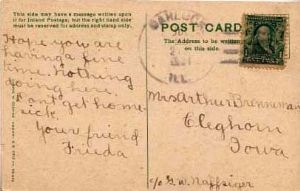 This side may have a message written upon
it for Inland Postage, but the right hand side
must be reserved for address and stamp only.
POST CARD
The Address to be written
on this side.
ILL.
Hope you are
having a fine
time. Nothing
doing here.
Don't get home-
sick.
Your friend
Frieda
Mrs Arthur Brenneman
Cleghorn
Iowa
c/o G. W. Naffziger